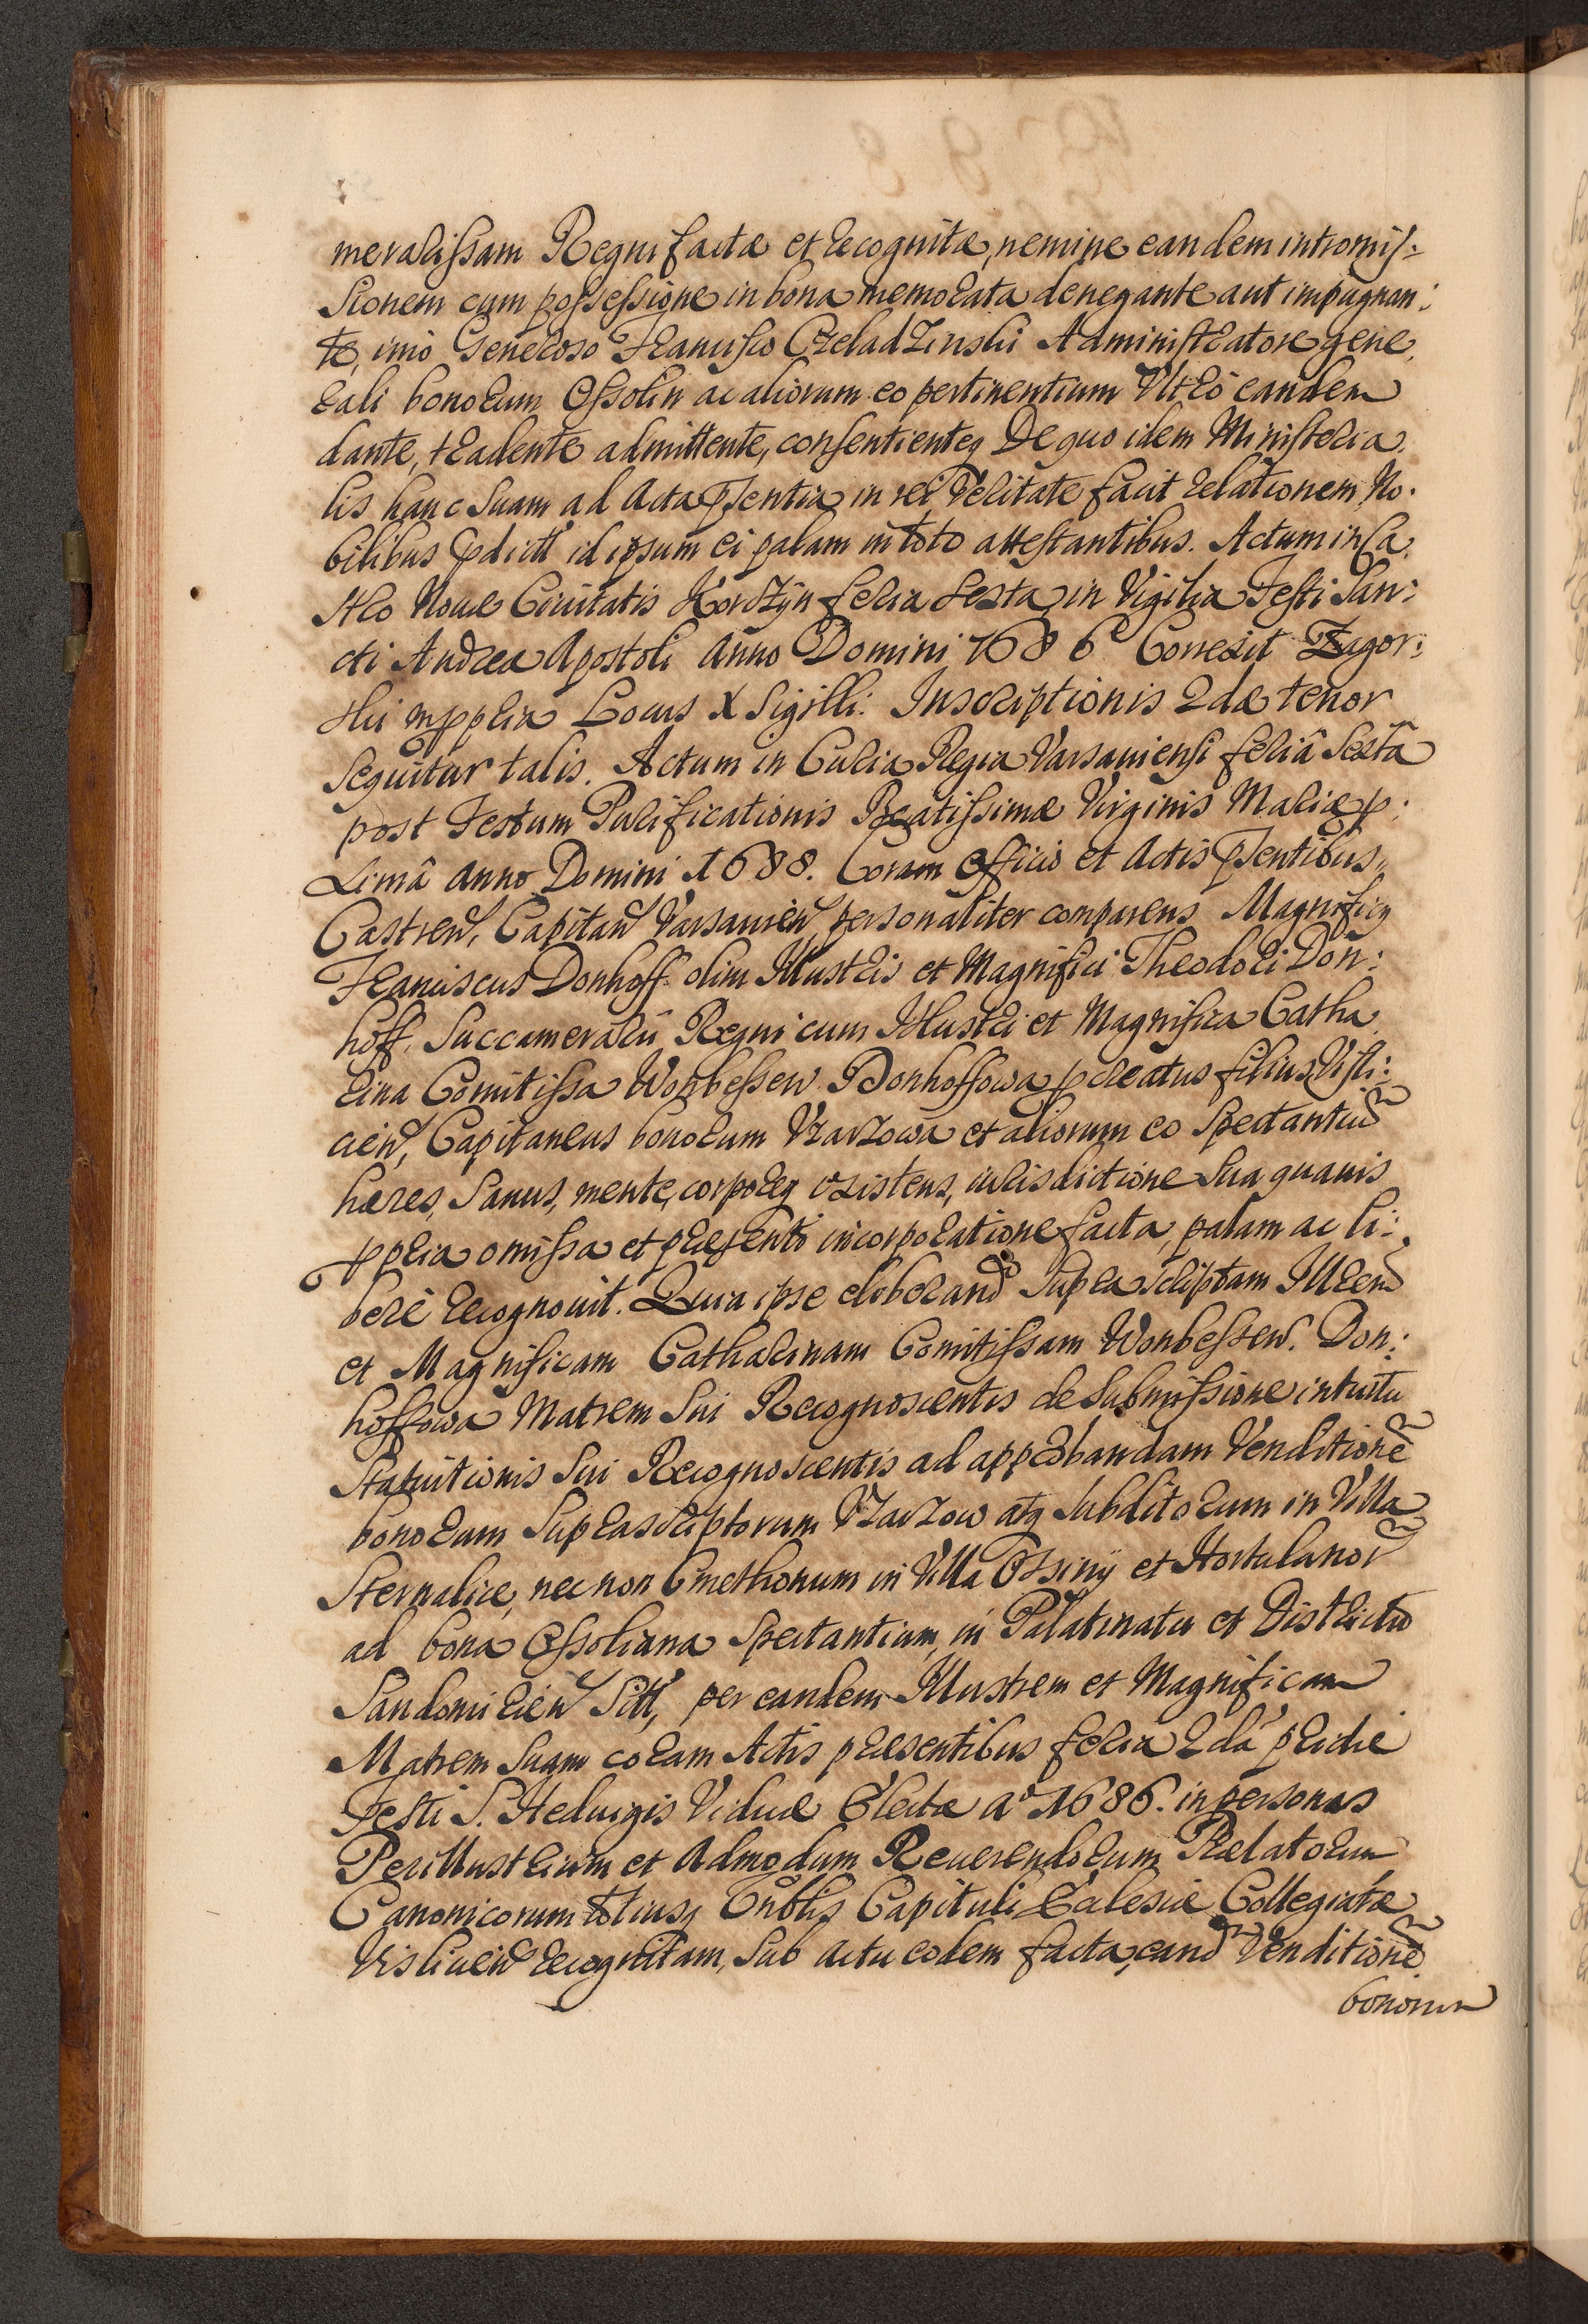 meralissam Regni factæ et recognitæ, nemine eandem intromis:
sionem cum possessione in bona memorata denegante aut impugnan:
te, imò Generoso Francisco Czeladzinski Administratore gene.
rali bonorum Ossolin ac aliorum eo pertinentium Vltrò eandem
dante, tradente admittente, consentienteq De quo idem Ministeria.
lis hanc Suam ad Acta pſentia in rei Veritate facit relationem, No.
bilibus pdictt id ipsum ei palam in toto attestantibus. Actum in Ca.
stro Nouæ Ciuitatis Korczyn feria Sexta in Vigilia Festi San:
cti Andreæ Apostoli Anno Domini 1686 Correxit Zagor:
ski mppria Locus X Sigilli. Inscriptionis 2dæ tenor
Sequitur talis. Actum in Curia Regia Varsauiensi feriâ Sextâ
post Festum Purificationis Beatissimæ Virginis Mariæ p:
rimâ anno Domini 1688. Coram Officio et Actis pſentibus,
Castren, Capitan Varsauien, personaliter comparens Magnificq
Franciscus Donhoff olim Illustris et Magnifici Theodori Don:
hoff, Succamerarii Regni cum Illustri et Magnifica Catha
rina Comitissa Wonbessew Donhoffowa pcreatus filius, Visli:
cien, Capitaneus bonorum Vzarzowa et aliorum eo Spectantiu
hæres, Sanus, mente, corporeq existens, iurisdictione Sua quauis
ppria omissa et præsenti incorporatione facta, palam ac li:
berè recognouit. Quia ipse eliberand Suprascriptam Illrem
et Magnificam Catharinam Comitissam Wonbessew. Don:
hoffowa Matrem Sui Recognoscentis de Submissione intuitu
Statuitionis Sui Recognoscentis ad approbandam Venditione
bonorum Suprascriptorum Vzarzow atq Subditorum in Villa
Sternalice, nec non Cmethonum in Villa Ossiny et Hortulanor
ad bona Ossoliana Spectantium, in Palatinatu et Districtu
Sandomirien Sitt, per eandem Illustrem et Magnificam
Matrem Suam coram Actis præsentibus feria 2dâ pridie
Festi S. Heduigis Viduæ Electæ Aº 1686. in personas
Perillustrium et Admodum Reuerendorum Prælatorum
Canonicorum totiusq Vnblis Capituli Ecclesiæ Collegiatæ
Vislicien recognitam, Sub actu eodem facta, eand Venditione
bonorum